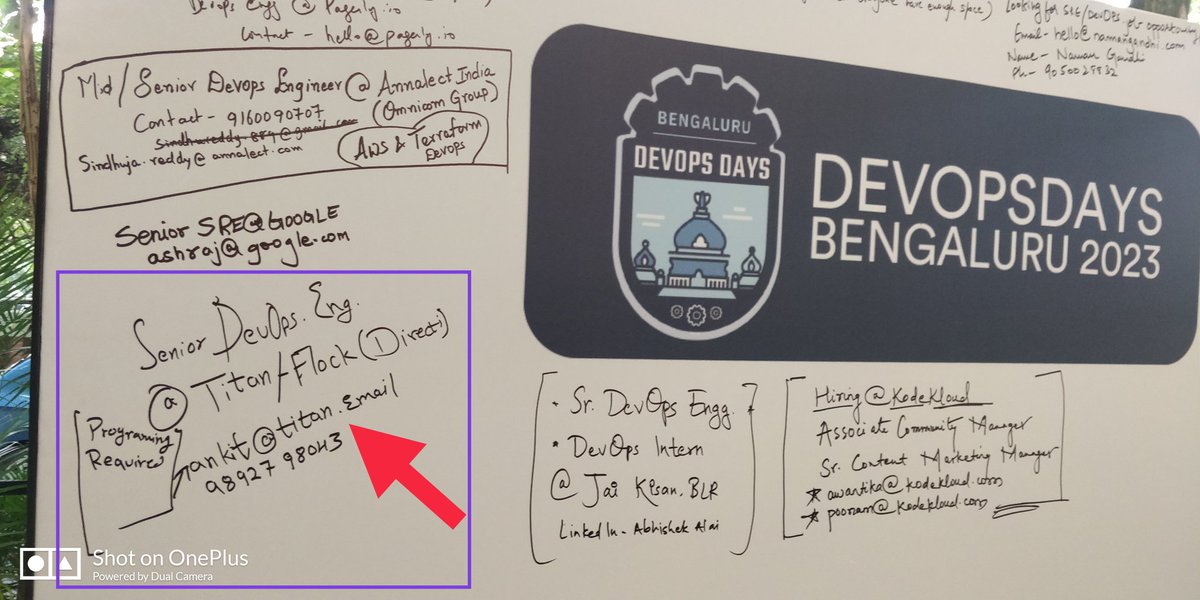 Devops Engg @ Pagerly.io
Contact - hello@pagerly.io
have enough space)
Looking for SRE/DevOps job opportunity
Email - hello@namangandhi.com
Name - Naman Gandhi
Ph - 9050029832
Mid/Senior Devops Engineer @ Annalect India
(Omnicom Group)
Contact - 9160090707
Sindhujareddy.889@gmail.com
Sindhuja.reddy@annalect.com
AWS & Terraform
Devops
Senior SRE@GOOGLE
ashraj@google.com
Senior DevOps. Eng.
@ Titan/Flock (Directi)
Programing
Requires
ankit@titan.Email
98927 98043
BENGALURU
DEVOPS DAYS
DEVOPSDAYS
BENGALURU 2023
• Sr. DevOps Engg.
* DevOps Intern
@ Jai Kisan, BLR
LinkedIn - Abhishek
Hiring@KodeKloud
Associate Community Manager
Sr. Content Marketing Manager
* awantika@kodekloud.com
* poonam@kodekloud.com
Shot on OnePlus
Powered by Dual Camera